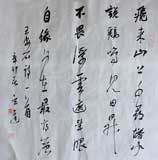 飛来山上千尋塔
聞說鷄鳴見日昇
不畏浮雲遮望眼
自緣身在最高層
王安石詩一首